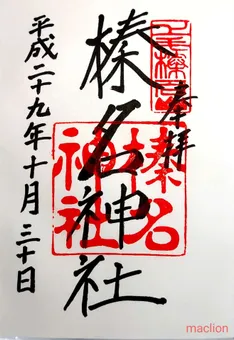 奉拝
榛名神社
平成二十九年十月三十日
榛名神社
maclion